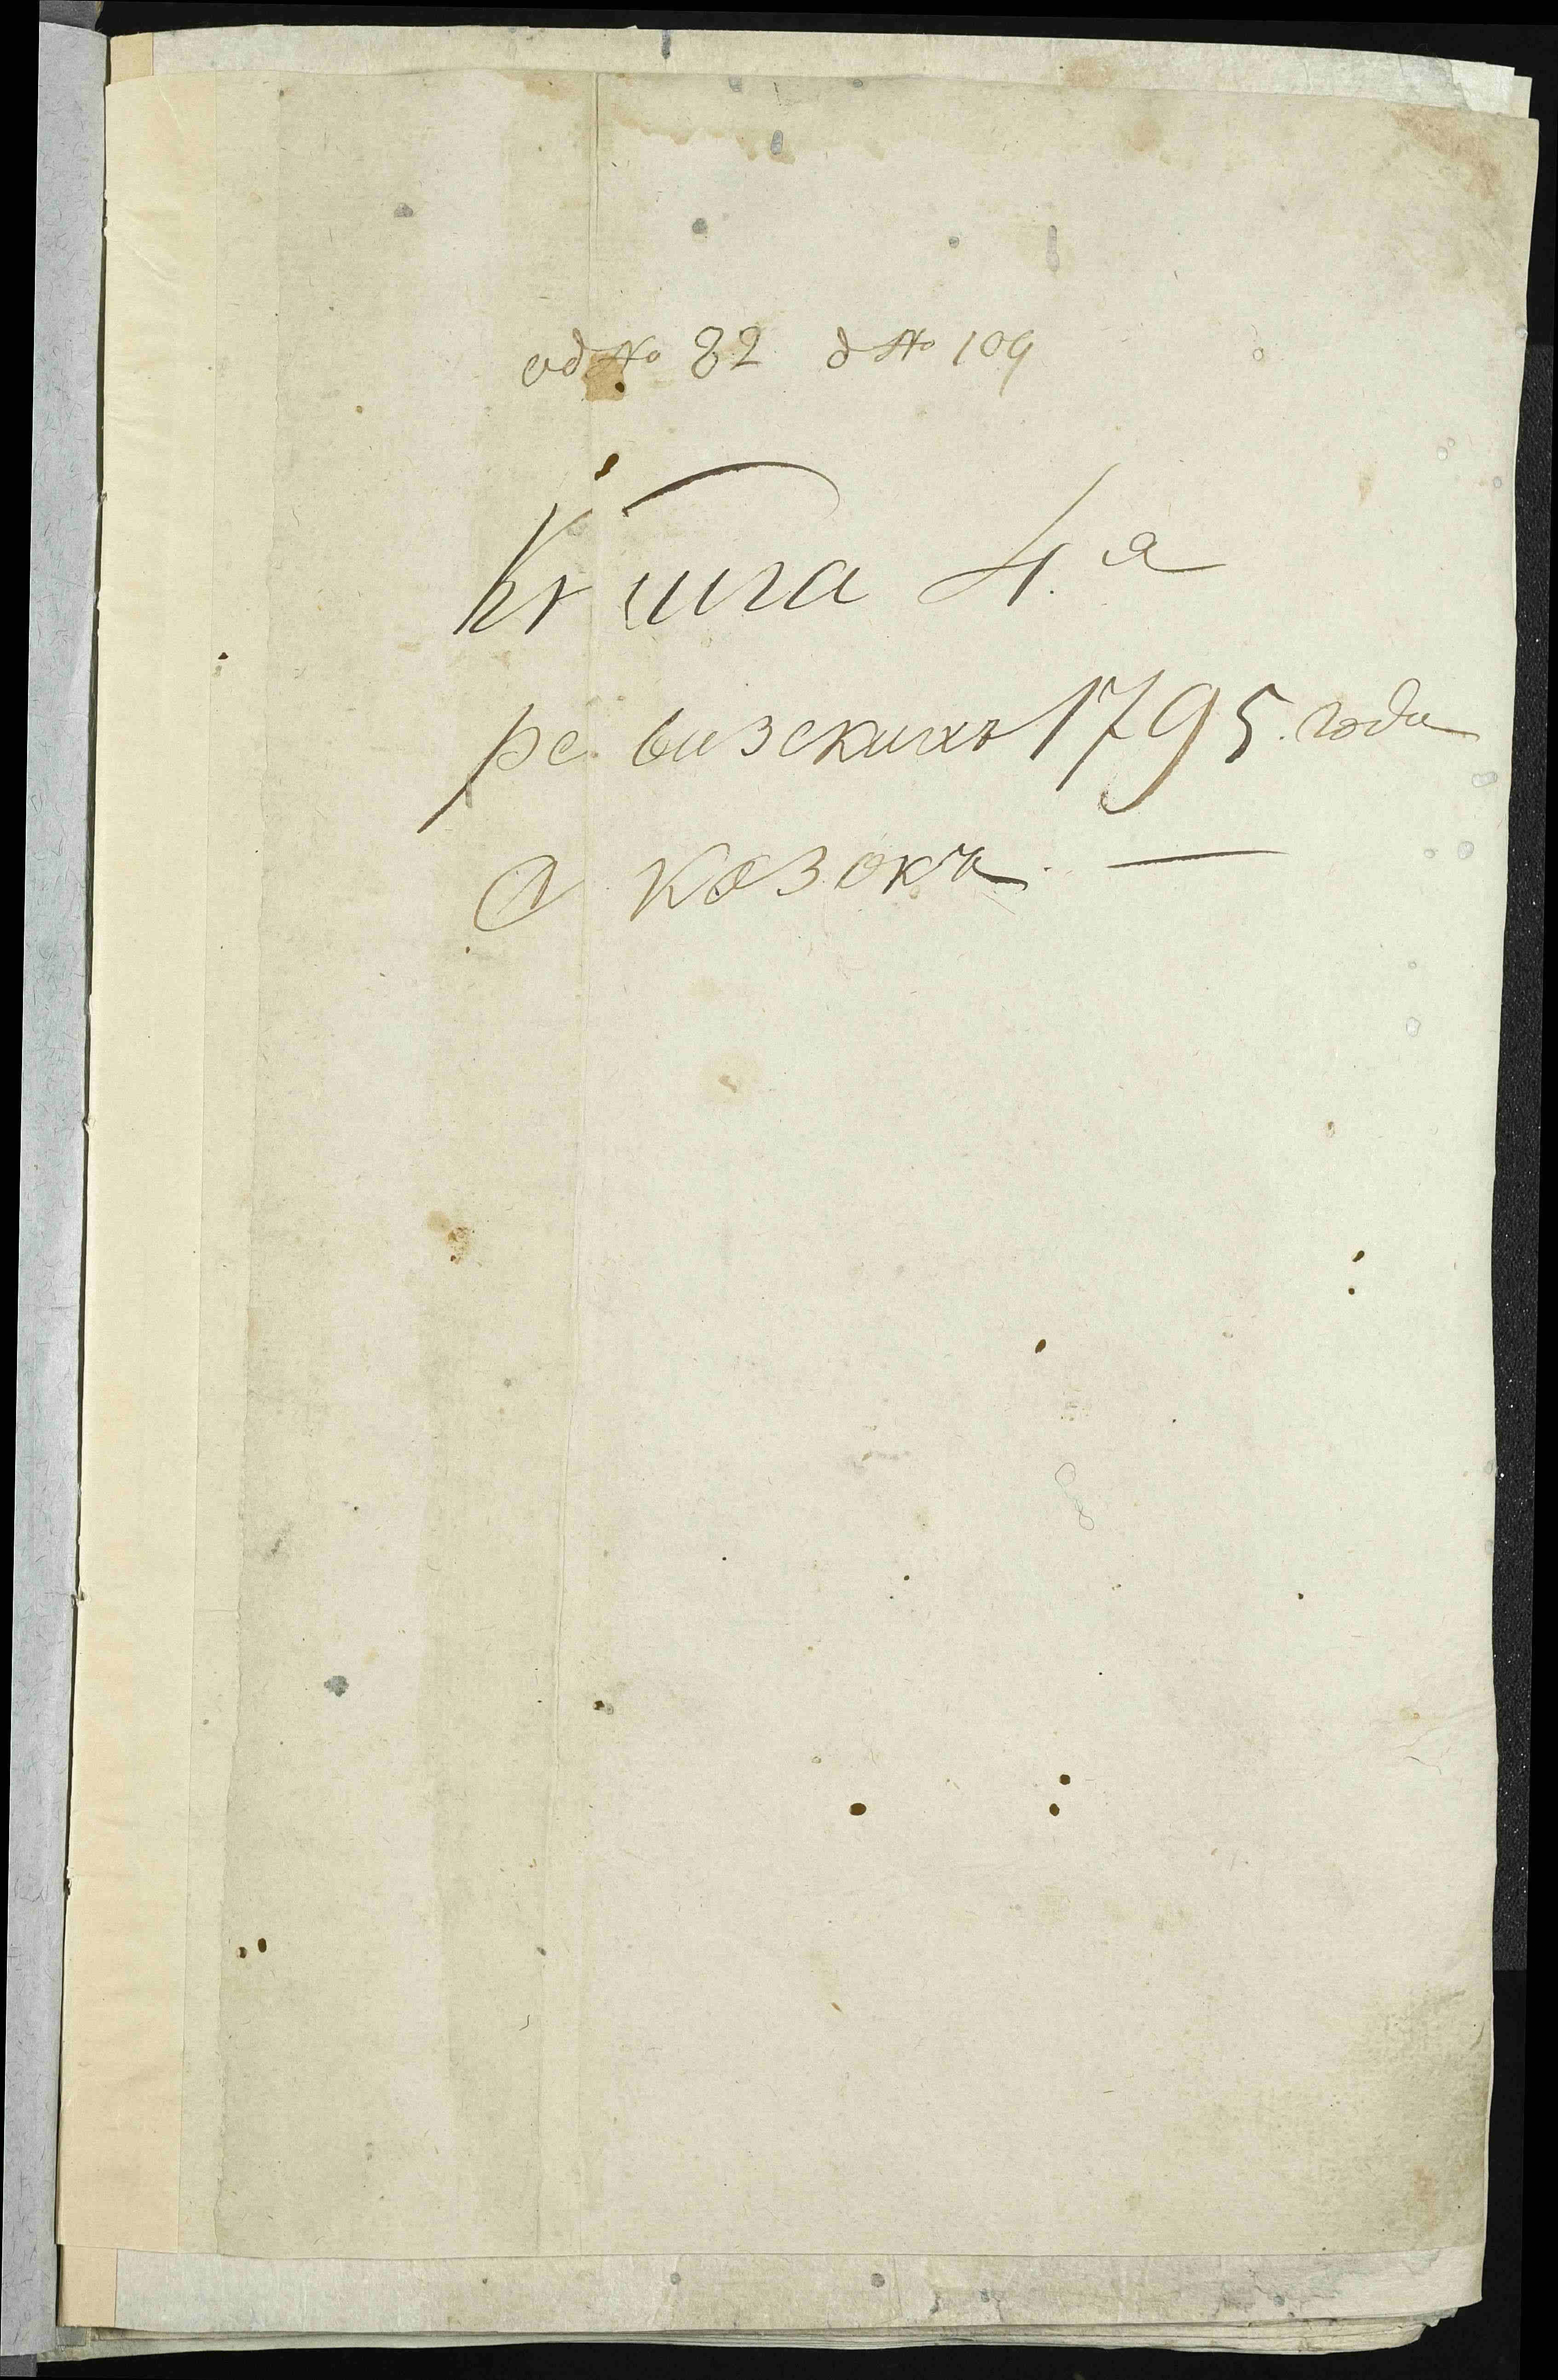 од № 82 д № 109
Книга 4.я
ревизских 1795. года
сказокъ. —